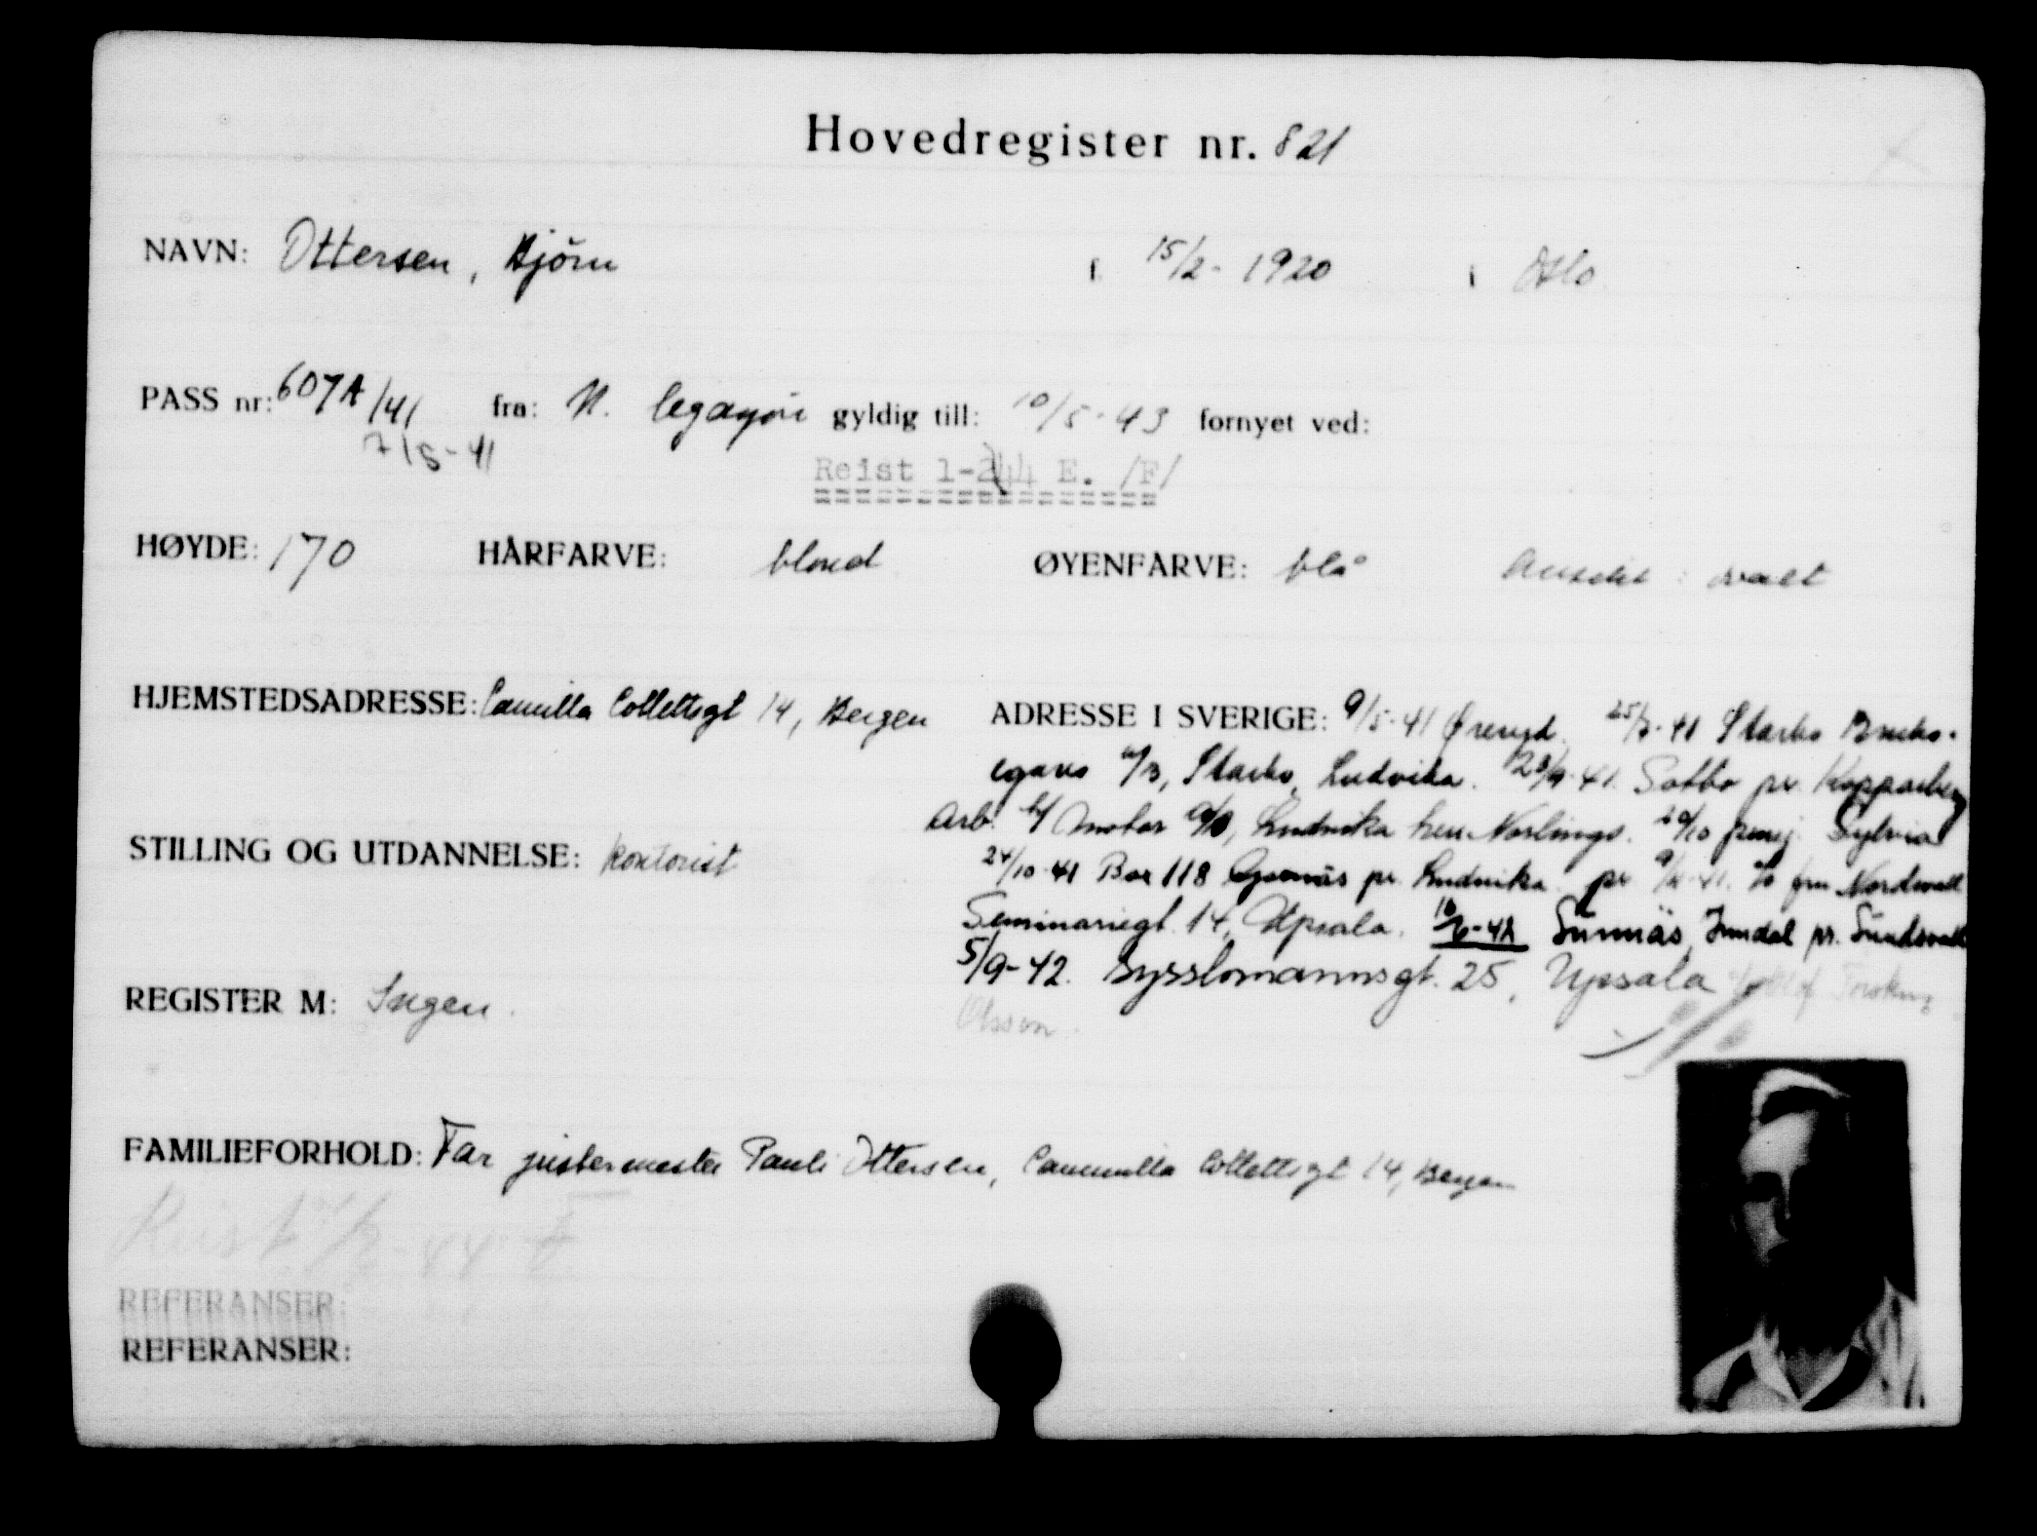 Hovedregister nr. 821
NAVN: Ottersen, Bjørn f. 15/2- 1920 i Oslo
PASS nr: 607A/41 fra: N. legasjon gyldig till: 10/5-43 fornyet ved:
7/5-41
Reist 1-244 E. /F/
HØYDE: 170 HÅRFARVE: blond ØYENFARVE: blå Ansikt: ovalt
HJEMSTEDSADRESSE: Camilla Collettsgt 14, Bergen
ADRESSE I SVERIGE: 9/5-41 Øreryd. 25/7-41 Starbo Bruks-
egavo Starbo, Ludvika. Sotbo pr. Kopparberg
Arb. Ludvika hen. Norlings. 20/10 Sylvia
24/10-41 Box 118 pr. Ludvika pr fru Nordwall
Seminariegt. 14, Upsala. Sunnäs, Indal pr. Sundsvall
5/9-42. Sysslomannsgt. 25, Upsala
Olsson.
STILLING OG UTDANNELSE: Kontorist
REGISTER M: Ingen.
FAMILIEFORHOLD: Far justermester Pauli Ottersen, Cammilla Collettsgt 14, Bergen
Reist 1/2-44 F
REFERANSER:
REFERANSER: